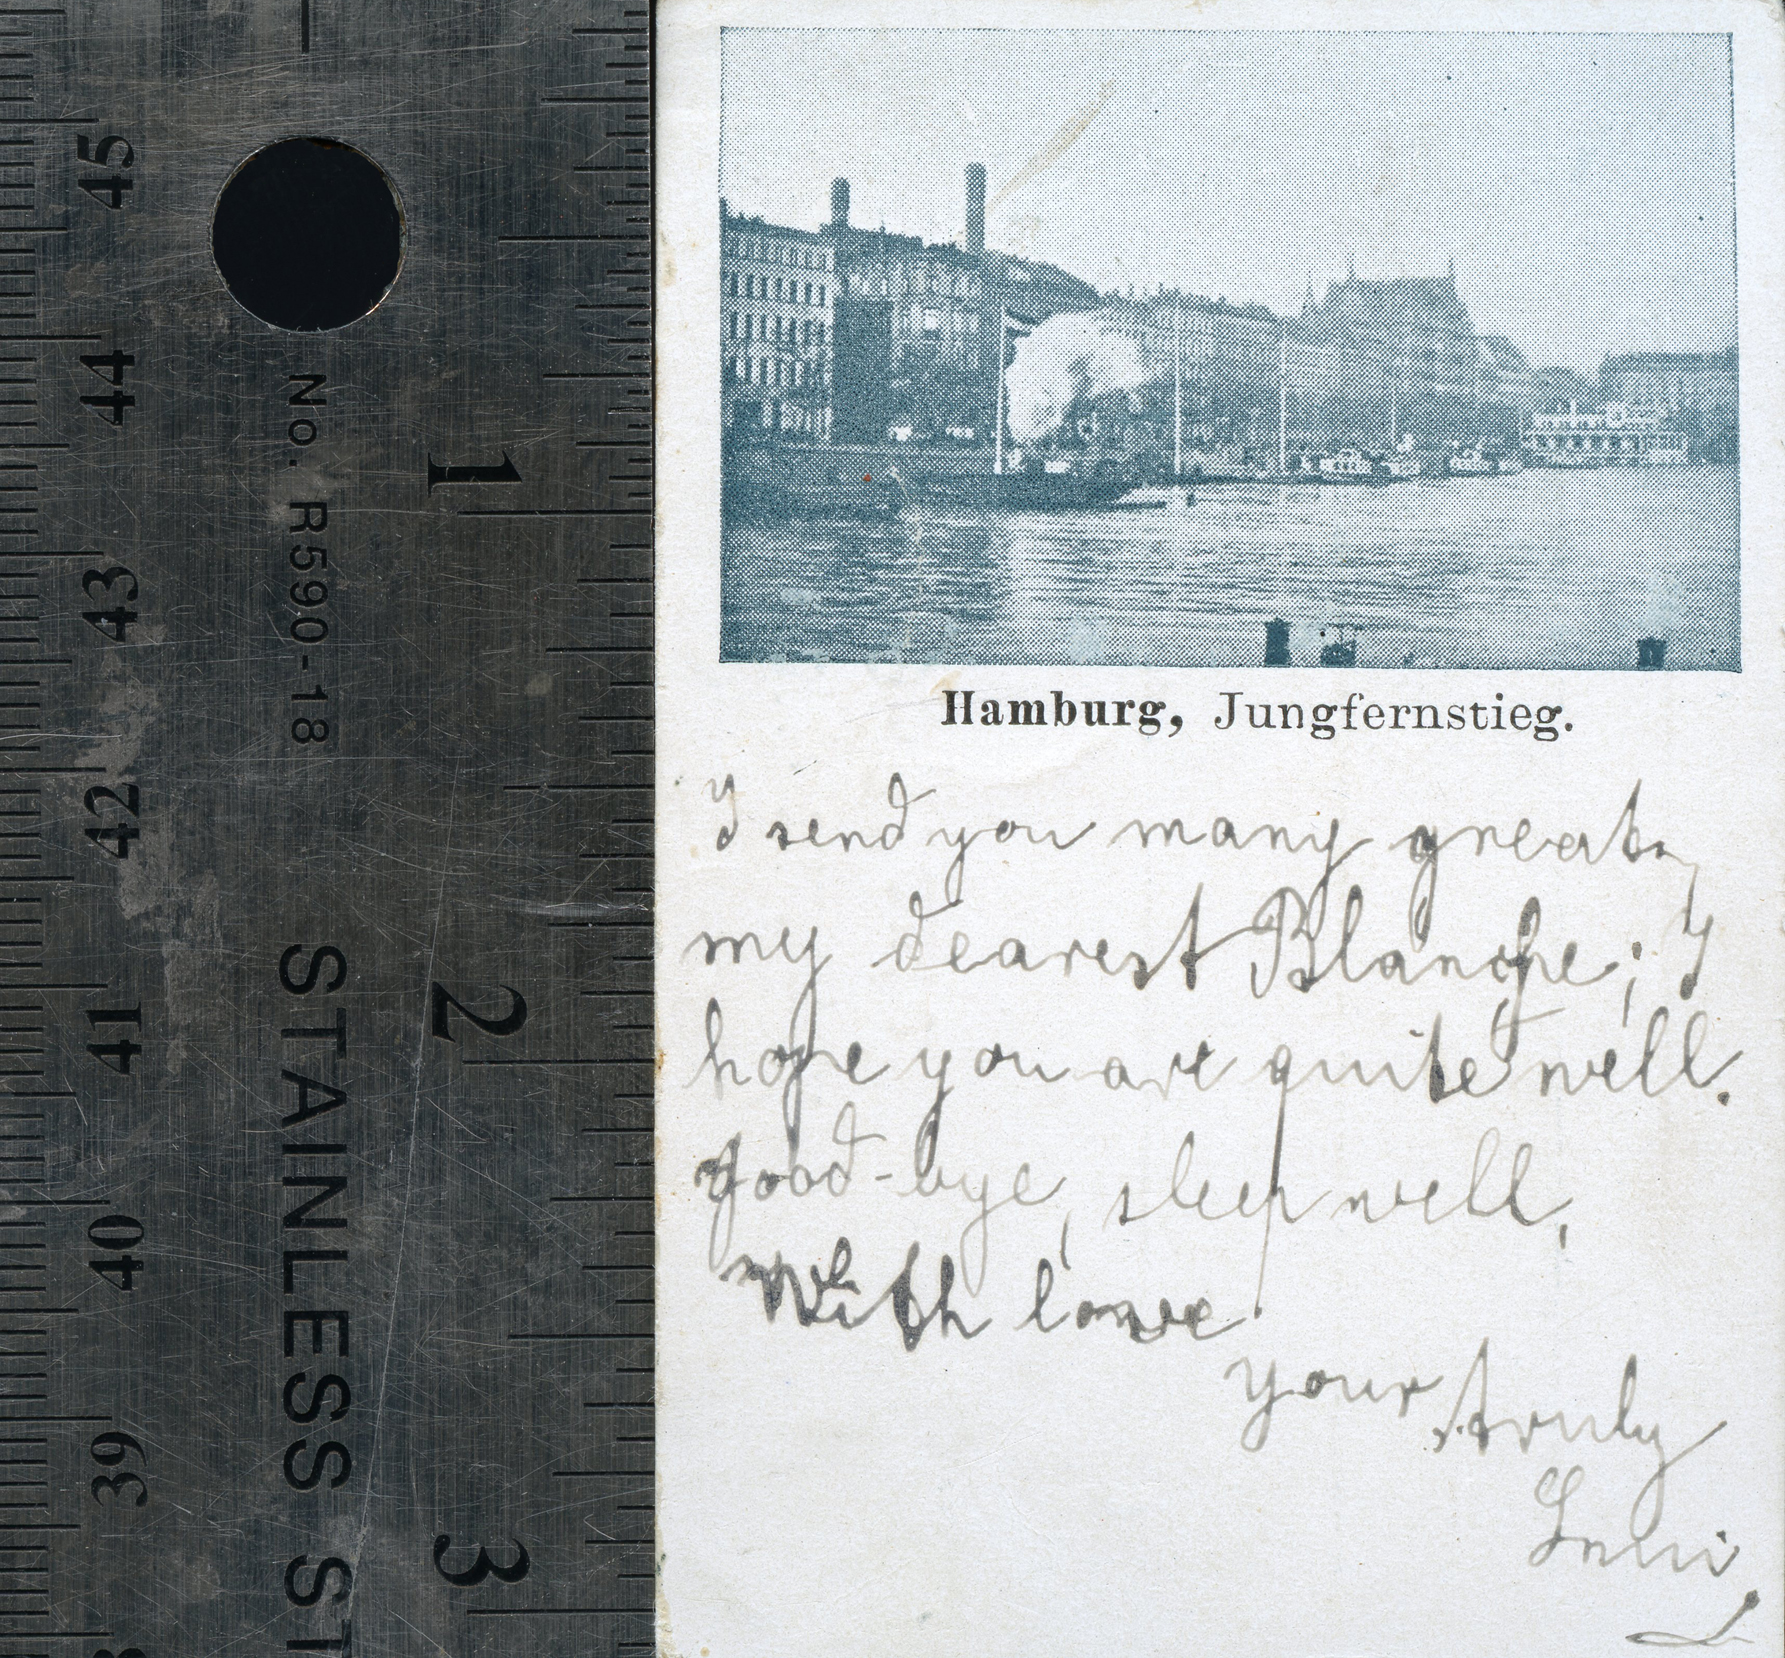 45
44
43
42
41
40
39
No. R590-18
STAINLESS ST
1
2
3
Hamburg, Jungfernstieg.
I send you many
my dearest Blanche; I
hope you are quite well.
Good-bye, sleep well,
With love
your truly